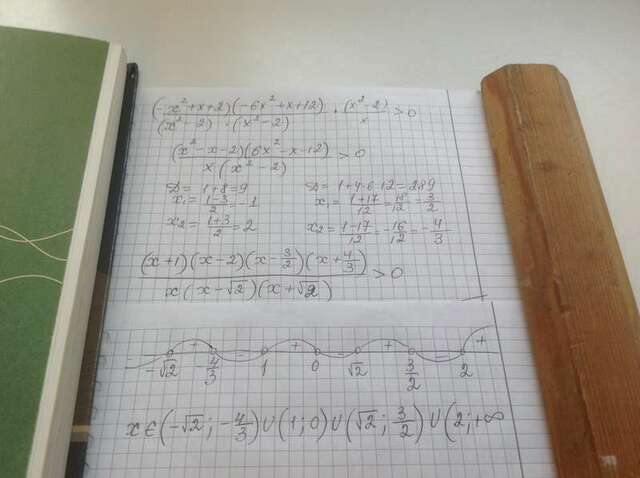 (-x²+x+2)(-6x²+x+12)/(x²-2)·(x²-2) · (x²-2)/x > 0
(x²-x-2)(6x²-x-12)/x(x²-2) > 0
D = 1+8=9 D = 1+4·6·12=289
x₁ = (1-3)/2 = -1 x₁ = (1+17)/12 = 18/12 = 3/2
x₂ = (1+3)/2 = 2 x₂ = (1-17)/12 = -16/12 = -4/3
(x+1)(x-2)(x-3/2)(x+4/3)/x(x-√2)(x+√2) > 0
- + - + - + - +
-√2 -4/3 1 0 √2 3/2 2
x∈(-√2; -4/3)∪(1; 0)∪(√2; 3/2)∪(2; +∞